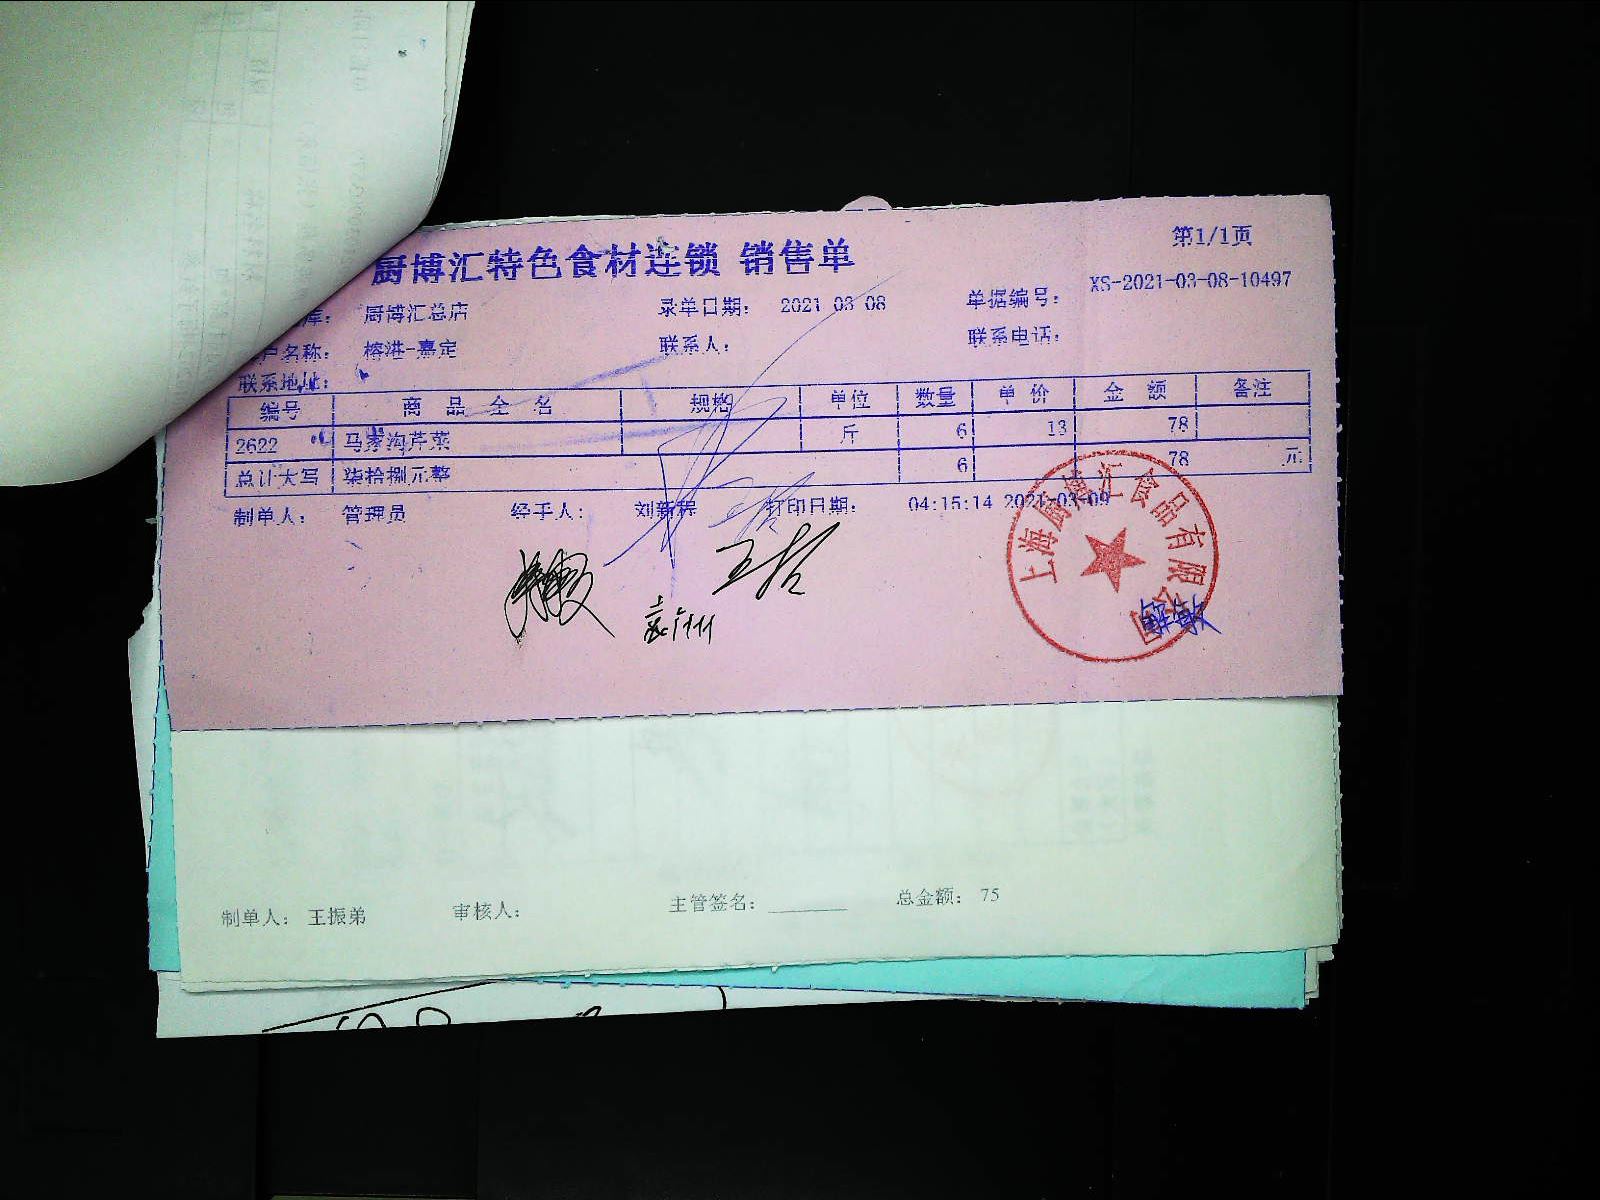 厨博汇特色食材连锁 销售单
第1/1页
库: 厨博汇总店 录单日期: 2021-03-08 单据编号: XS-2021-03-08-10497
户名称: 榕港-嘉定 联系人: 联系电话:
联系地址:
编号 商品全名 规格 单位 数量 单价 金额 备注
2622 马家沟芹菜 斤 6 13 78
总计大写 柒拾捌元整 6 78 元
制单人: 管理员 经手人: 刘新程 打印日期: 04:15:14 2021-03-09
上海厨博汇食品有限公司
制单人: 王振弟 审核人: 主管签名: 总金额: 75